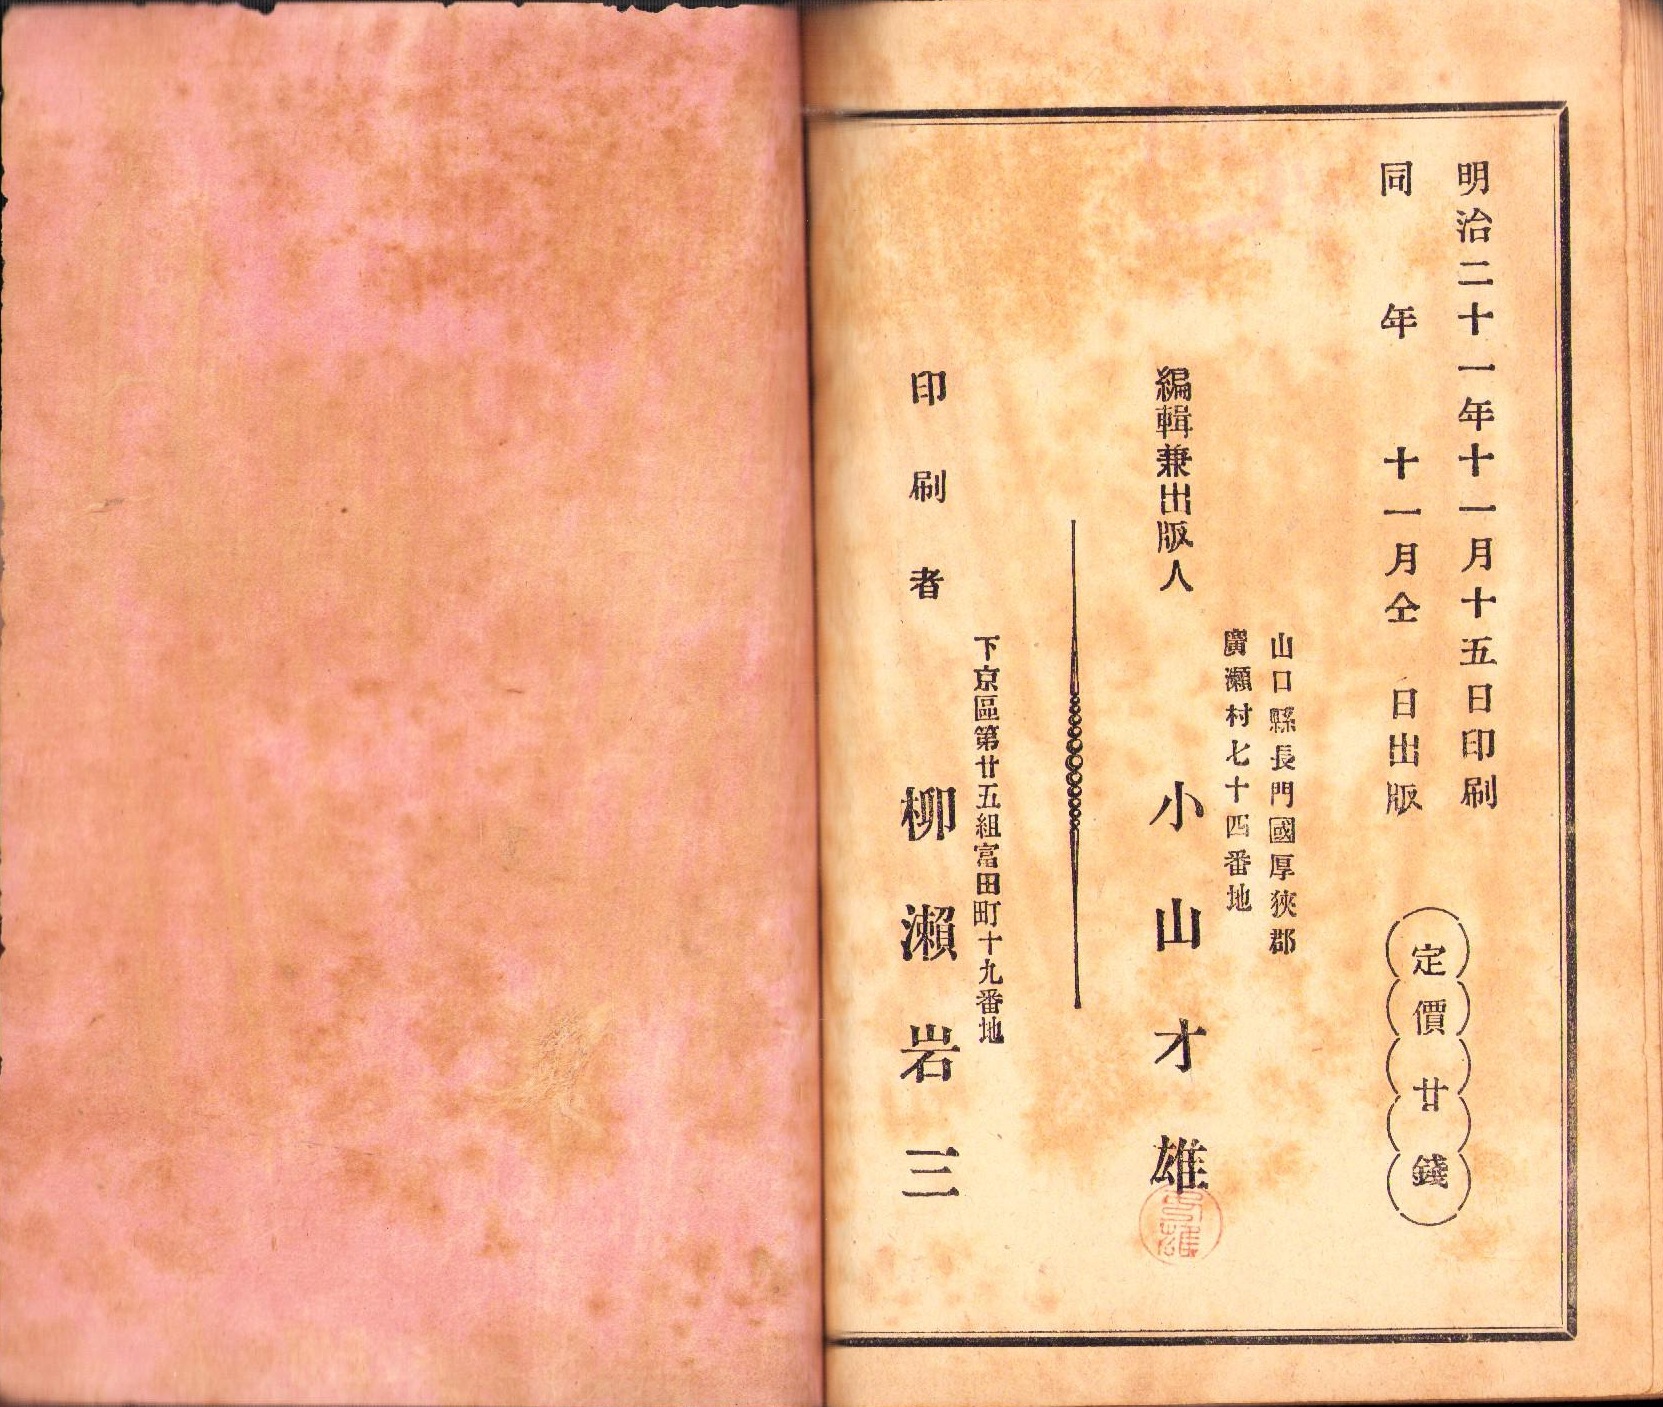 明治二十一年十一月十五日印刷
同年十一月仝日出版
定價廿錢
山口縣長門國厚狹郡
廣瀬村七十四番地
編輯兼出版人
小山才雄
下京區第廿五組富田町十九番地
印刷者
柳瀬岩三